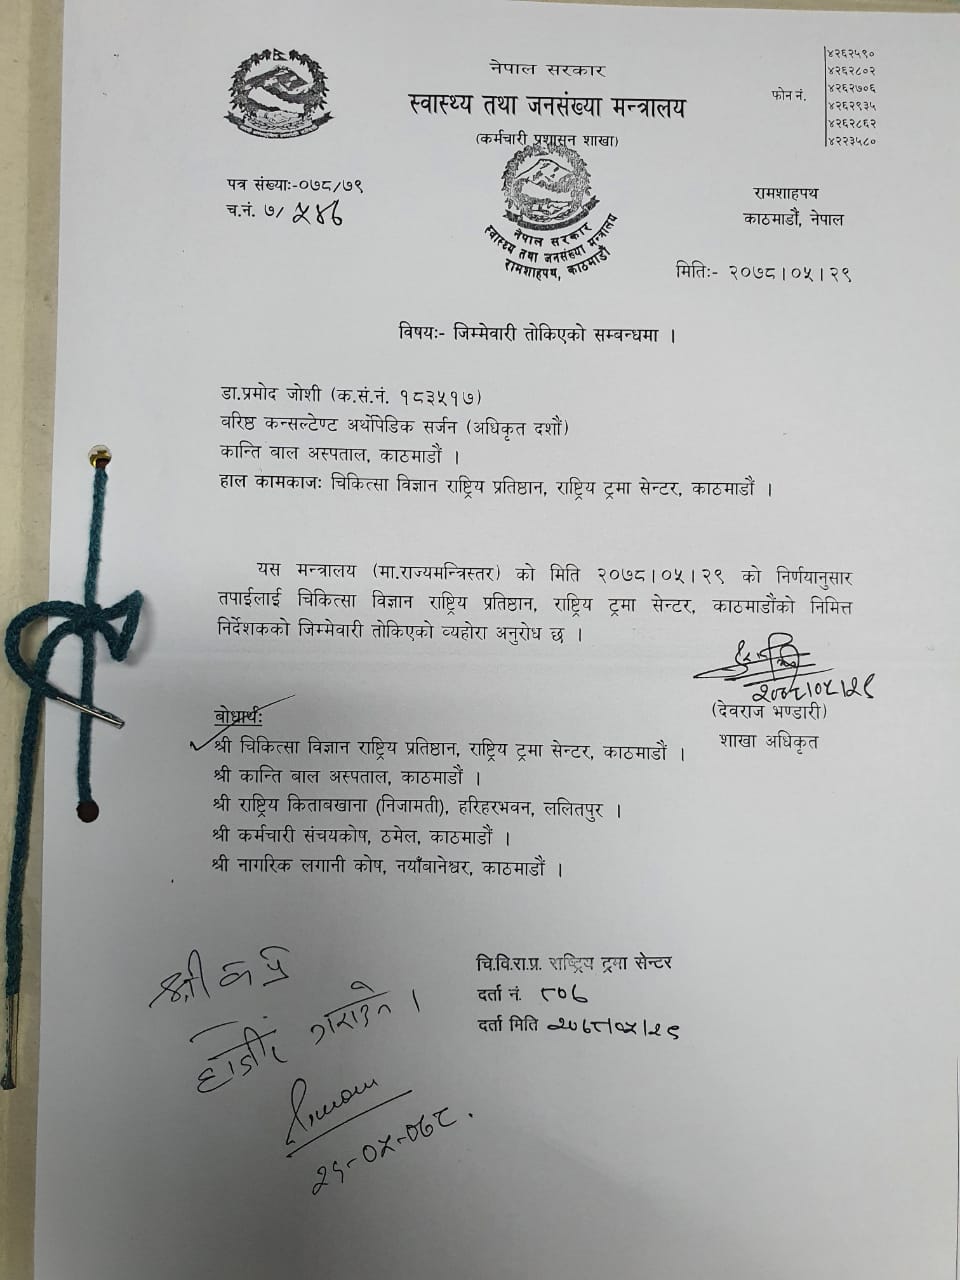 नेपाल सरकार
स्वास्थ्य तथा जनसंख्या मन्त्रालय
(कर्मचारी प्रशासन शाखा)
फोन नं.
४२६२५९०
४२६२८०२
४२६२७०६
४२६२९३५
४२६२८६२
४२२३५८०
पत्र संख्याः-०७८/७९
च.नं. ७/ ५४६
नेपाल सरकार
स्वास्थ्य तथा जनसंख्या मन्त्रालय
रामशाहपथ, काठमाडौं
रामशाहपथ
काठमाडौं, नेपाल
मितिः- २०७८।०५।२९
विषयः- जिम्मेवारी तोकिएको सम्बन्धमा ।
डा.प्रमोद जोशी (क.सं.नं. १८३५१७)
वरिष्ठ कन्सल्टेण्ट अर्थोपेडिक सर्जन (अधिकृत दशौं)
कान्ति बाल अस्पताल, काठमाडौं ।
हाल कामकाजः चिकित्सा विज्ञान राष्ट्रिय प्रतिष्ठान, राष्ट्रिय ट्रमा सेन्टर, काठमाडौं ।
यस मन्त्रालय (मा.राज्यमन्त्रिस्तर) को मिति २०७८।०५।२९ को निर्णयानुसार
तपाईलाई चिकित्सा विज्ञान राष्ट्रिय प्रतिष्ठान, राष्ट्रिय ट्रमा सेन्टर, काठमाडौंको निमित्त
निर्देशकको जिम्मेवारी तोकिएको व्यहोरा अनुरोध छ ।
२०७८।०५।२९
(देवराज भण्डारी)
शाखा अधिकृत
बोधार्थः
श्री चिकित्सा विज्ञान राष्ट्रिय प्रतिष्ठान, राष्ट्रिय ट्रमा सेन्टर, काठमाडौं ।
श्री कान्ति बाल अस्पताल, काठमाडौं ।
श्री राष्ट्रिय किताबखाना (निजामती), हरिहरभवन, ललितपुर ।
श्री कर्मचारी संचयकोष, ठमेल, काठमाडौं ।
श्री नागरिक लगानी कोष, नयाँबानेश्वर, काठमाडौं ।
चि.वि.रा.प्र. राष्ट्रिय ट्रमा सेन्टर
दर्ता नं. ८०७
दर्ता मिति २०७८।०५।२९
श्री क प्र
गराउने ।
२९-०५-०७८.